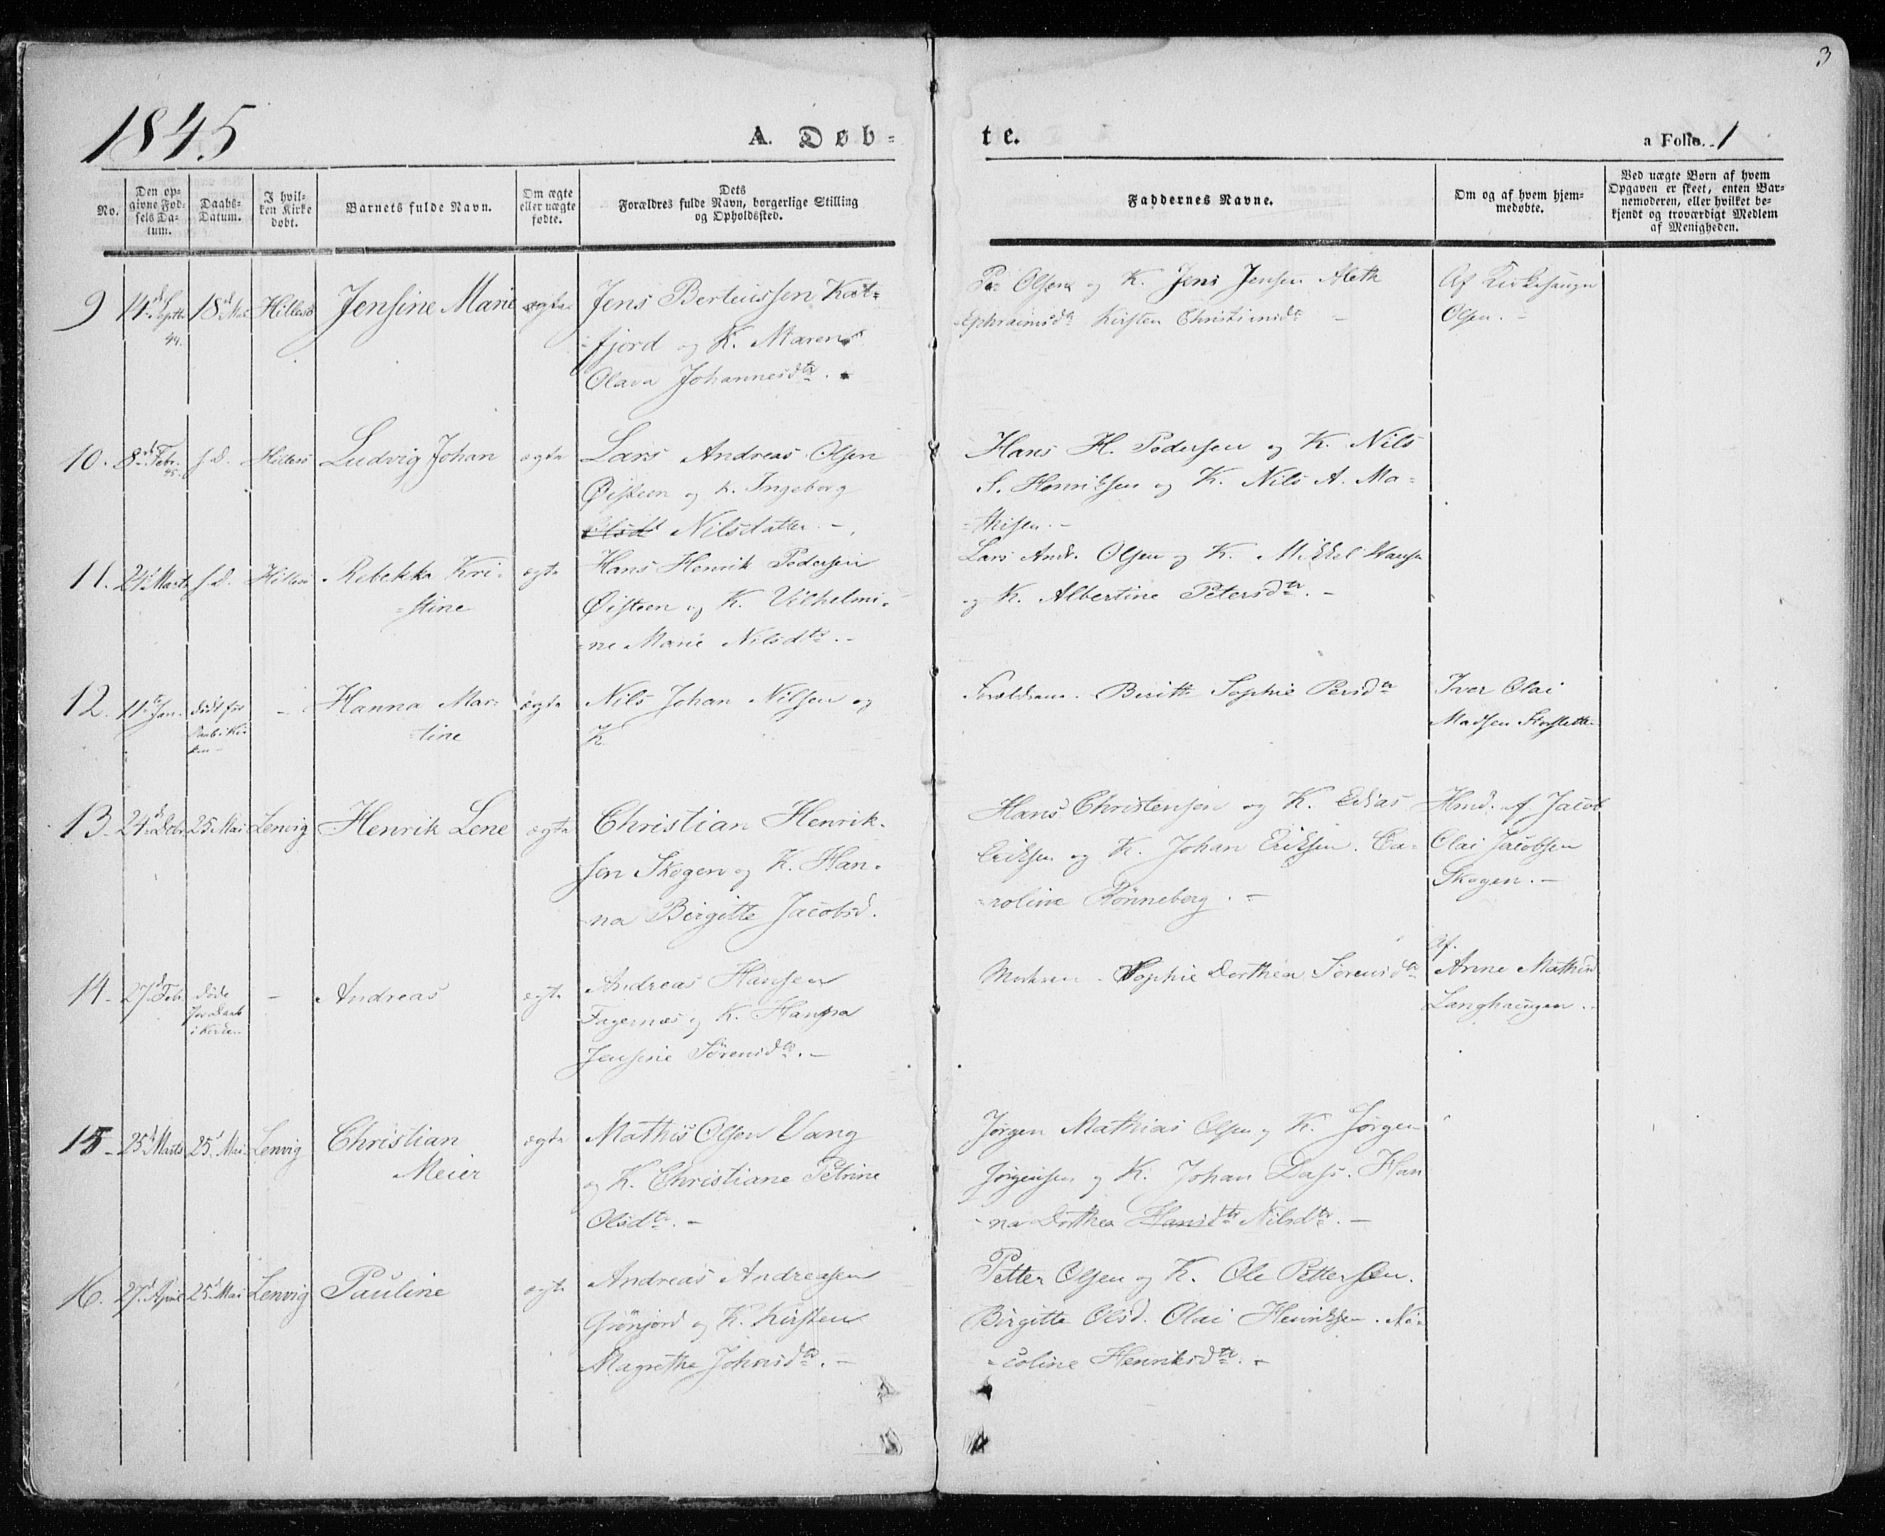 3
1845
A. Døb-
te.
a Folio. 1
No.
Den op-
givne Fød-
sels Da-
tum.
Daabs-
Datum.
I hvil-
ken Kirke
døbt.
Barnets fulde Navn.
Om ægte
eller uægte
fødte.
Dets
Forældres fulde Navn, borgerlige Stilling
og Opholdssted.
Faddernes Navne.
Om og af hvem hjem-
medøbte.
Ved uægte Børn af hvem
Opgaven er skeet, enten Bar-
nemoderen, eller hvilket be-
kjendt og troværdigt Medlem
af Menigheden.
9
14d Septbr
44.
18d Mai
Hillesø
Jensine Marie
ægte
Jens Berteussen Kat-
fjord og K. Maren
Olava Johannesdtr. -
Olsen og K. Jens Jensen Aleth
Ephraimsdtr Kirsten Christiansdtr -
Af
Olsen. -
10.
8d Febr.
45.
s. D.
Hillesø
Ludvig Johan
ægte
Lars Andreas Olsen
Øisteen og K. Ingeborg
Olsdt Nilsdatter. -
Hans H. Pedersen og K. Nils
S. Henriksen og K. Nils A. Ma-
thisen. -
11.
24d Marts
s. D.
Hillesø
Rebekka Kri-
stine
ægte
Hans Henrik Pedersen
Øisteen og K. Vilhelmi-
ne Marie Nilsdtr. -
Lars Andr. Olsen og K. Mikkel Hansen
og K. Albertine Petersdtr. -
12.
11d Jan.
død for
Daab i Kir-
ken -
-
Hanna Mar-
tine
ægte
Nils Johan Nilsen og
K.
Forældrene. Berith Sophie Persdtr
Iver Olai
Madsen
13.
24d Decbr
25. Mai
Lenvig
Henrik Lene
ægte
Christian Henrik-
sen Skogen og K. Han-
na Birgitte Jacobsd.
Hans Christensen og K. Elias
Eriksen og K. Johan Eriksen. Ca-
roline Rønneberg. -
Hmd. af Jacob
Olai Jacobsen
Skogen. -
14.
27d Febr.
døde
før Daab
i Kirken.
-
Andreas
ægte
Andreas Hansen
Fagernæs og K. Hanna
Jensine Sørensdtr. -
Moderen. Sophie Dorthea Sørensdtr
Af
Arne Mathis
Langhaugen. -
15.
25d Marts
25d Mai
Lenvig
Christian
Meier
ægte
Mathis Olsen Vang
og K. Christiane Petrine
Olsdtr. -
Jørgen Mathias Olsen og K. Jørgen
Jørgensen og K. Johan Dass. Han
na Dorthea Hansdtr Nilsdtr. -
16.
27d April
25d Mai
Lenvig
Pauline
ægte
Andreas Andreasen
Grønjord og K. Kirsten
Magrethe Johnsdtr. -
Petter Olsen og K. Ole Pettersen.
Birgitte Olsd. Olai Henriksen. Ni-
coline Henriksdtr. -